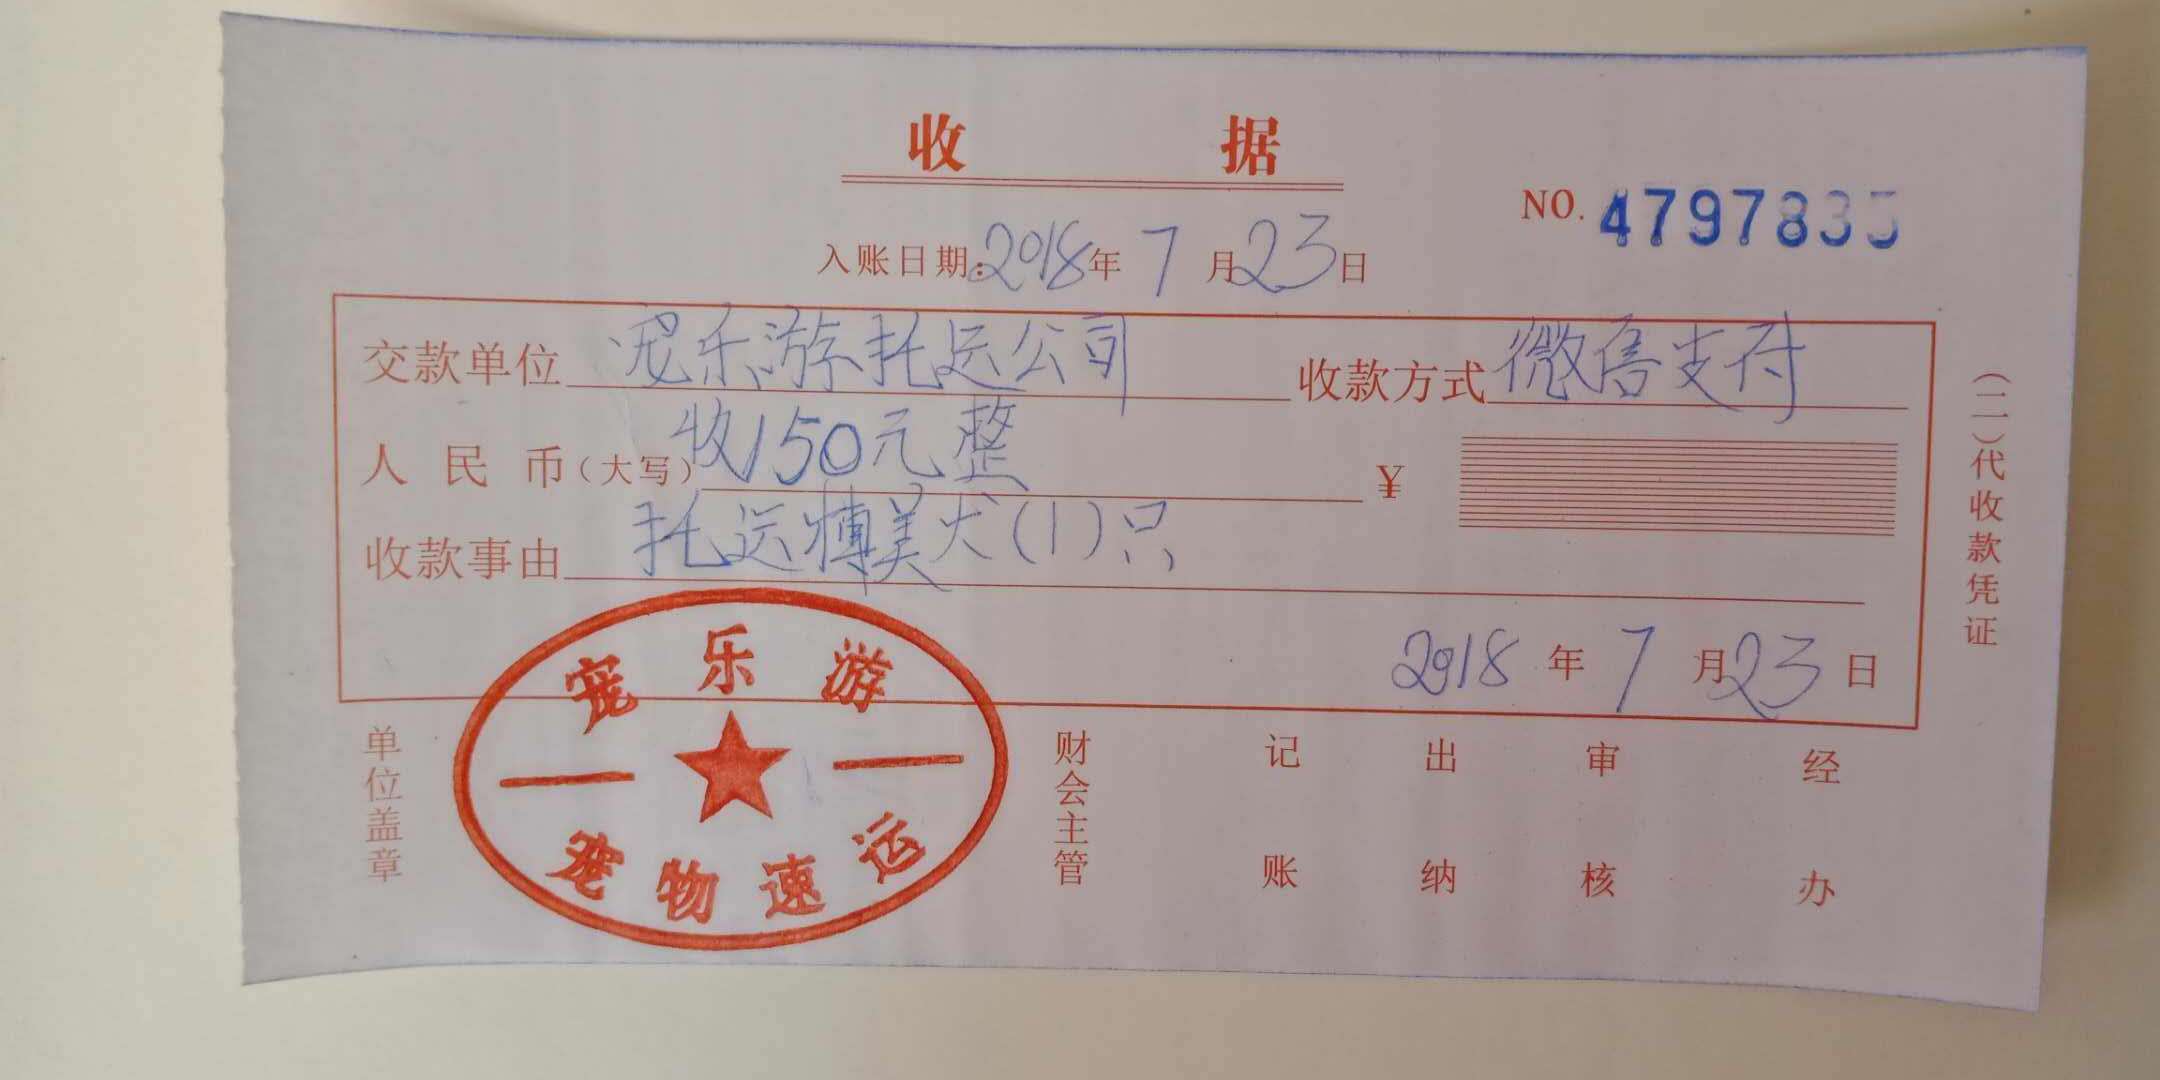 收 据
NO. 4797835
入账日期:2018年 7 月23日
交款单位 宠乐游托运公司 收款方式 微信支付
人 民 币(大写) 收150元整 ¥
收款事由 托运博美犬(1)只
2018 年 7 月23 日
(二)代收款凭证
单位盖章
宠乐游
宠物速运
财会主管
记账
出纳
审核
经办